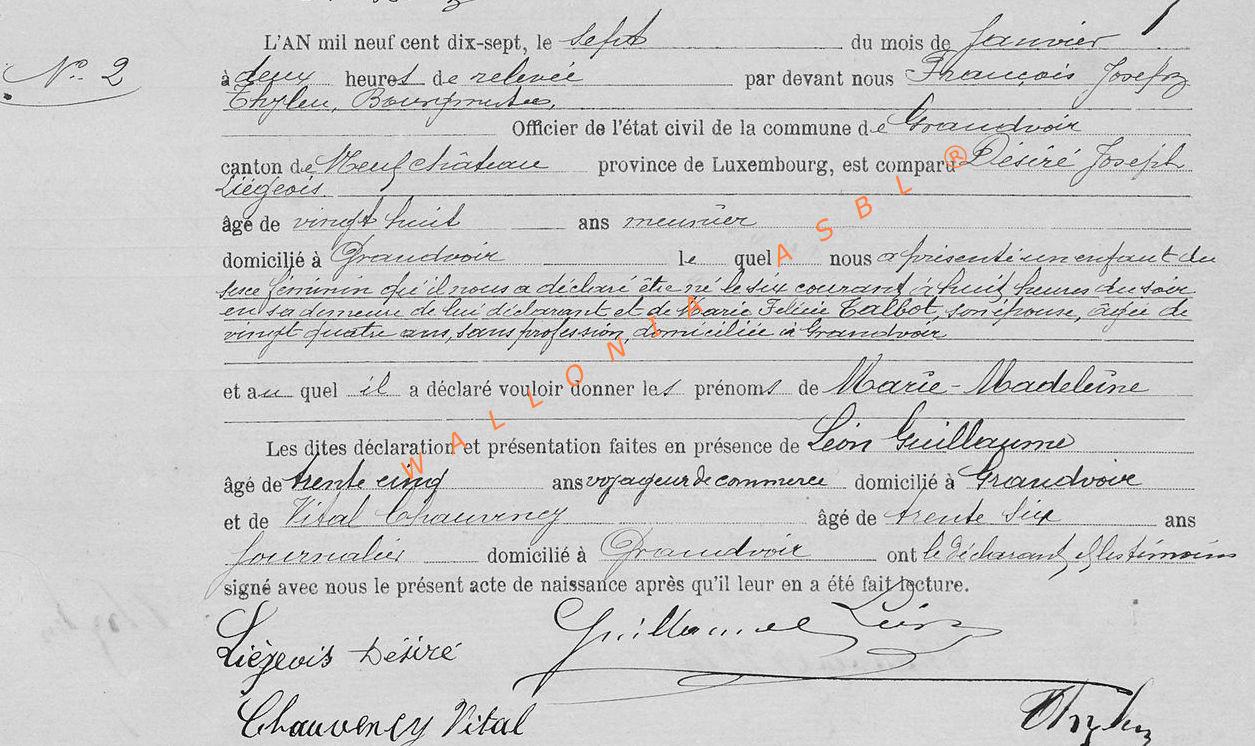 L'AN mil neuf cent dix-sept, le sept du mois de Janvier
N° 2
à deux heures de relevée par devant nous François Josefz
Bourgmestre,
Officier de l'état civil de la commune de Grandvoir
canton de Neufchâteau province de Luxembourg, est comparu Désiré Joseph
Liégeois
âgé de vingt huit ans meunier
domicilié à Grandvoir le quel nous a présenté un enfant du
sexe féminin qu'il nous a déclaré être né le six courant à huit heures du soir
en sa demeure de lui déclarant et de Marie Félicie Talbot, son épouse, âgée de
vingt quatre ans, sans profession, domiciliée à Grandvoir
et au quel il a déclaré vouloir donner les prénoms de Marie-Madeleine
Les dites déclaration et présentation faites en présence de Léon Guillaume
âgé de trente cinq ans voyageur de commerce domicilié à Grandvoir
et de Vital Chauvency âgé de trente six ans
journalier domicilié à Grandvoir ont le déclarant et les témoins
signé avec nous le présent acte de naissance après qu'il leur en a été fait lecture.
Liégeois Désiré
Guillaume Léon
Chauvency Vital
WALLONIA ASBL ®